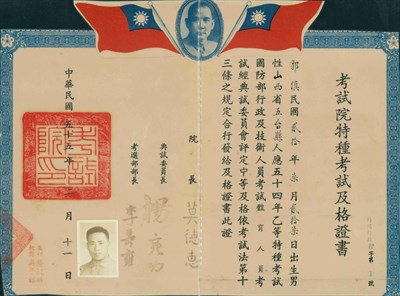 考試院特種考試及格證書
郭滇民國貳拾年柒月貳拾柒日出生男
性山西省五台縣人應五十四年乙等特種考試
國防部行政及技術人員考試監育人員考
試經典試委員會評定中等及格依考試法第十
三條之規定合行發給及格證書此證
院長 莫德惠
典試委員長
考選部部長
中華民國五十五年二月十一日
考試院印